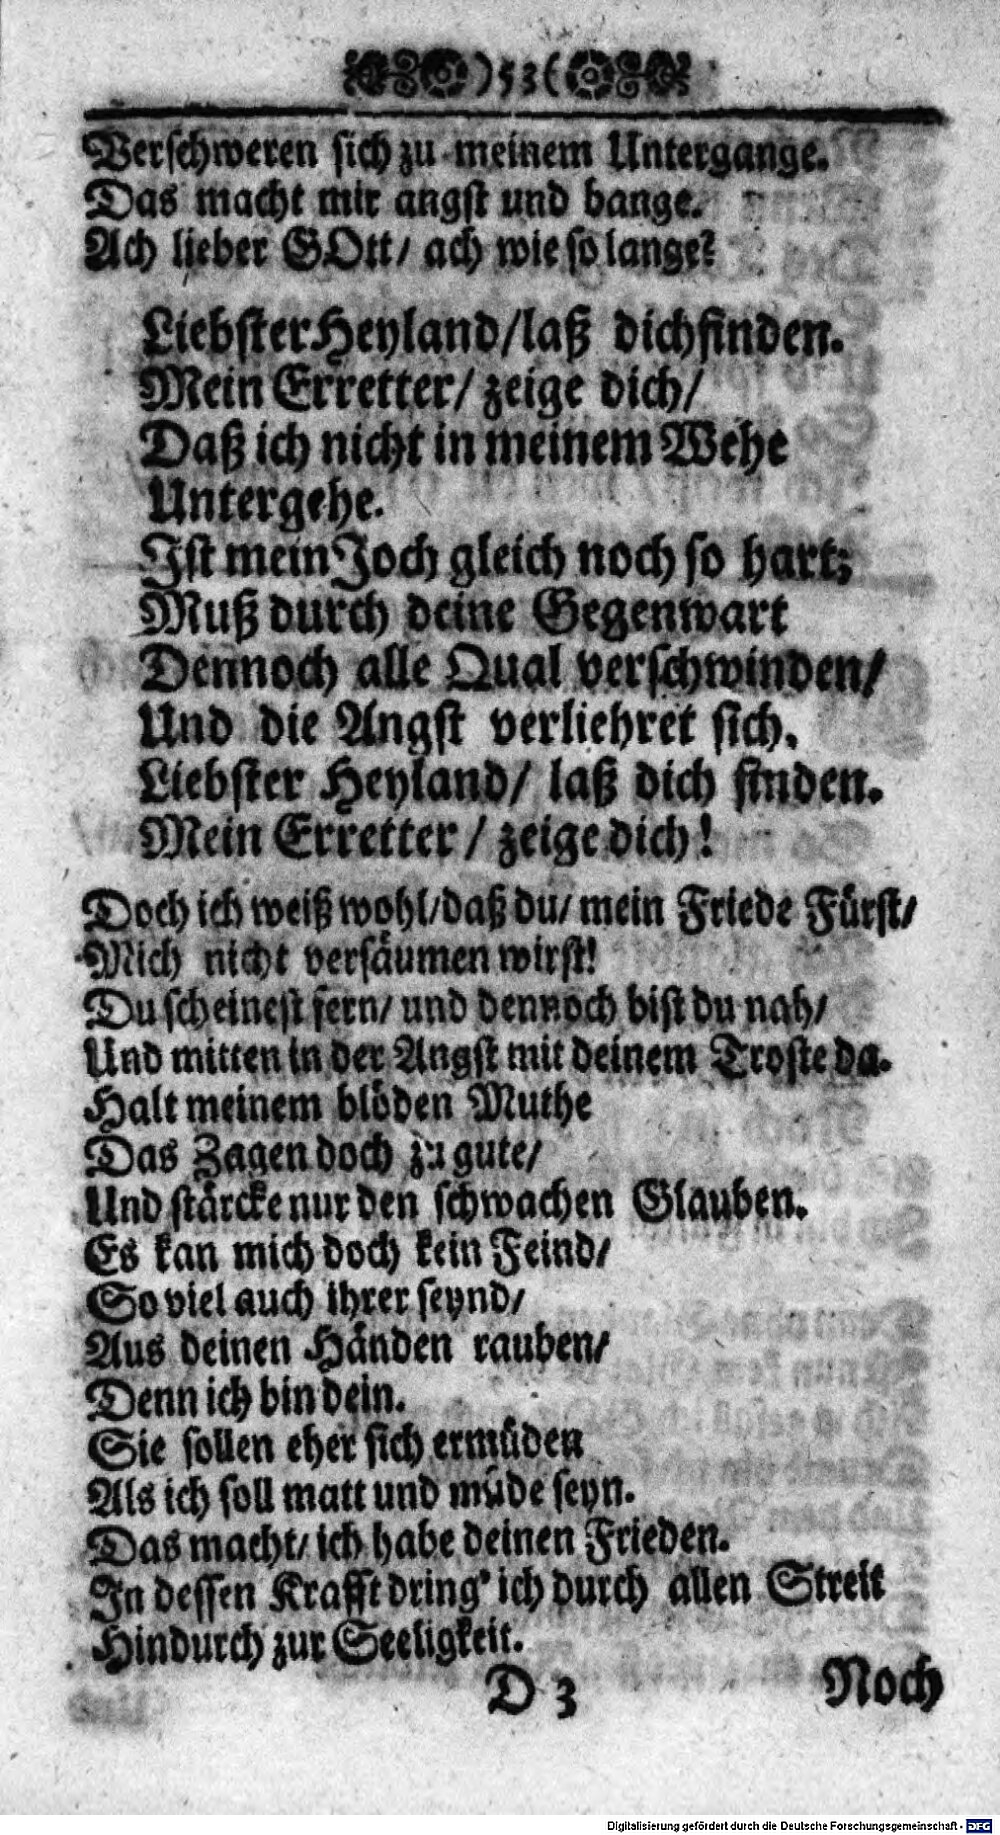 )53(
Verschweren sich zu meinem Untergange.
Das macht mir angst und bange.
Ach lieber GOtt/ ach wie so lange?
Liebster Heyland/laß dich finden.
Mein Erretter/ zeige dich/
Daß ich nicht in meinem Wehe
Untergehe.
Ist mein Joch gleich noch so hart;
Muß durch deine Gegenwart
Dennoch alle Qual verschwinden/
Und die Angst verliehret sich.
Liebster Heyland/ laß dich finden.
Mein Erretter / zeige dich!
Doch ich weiß wohl/daß du/ mein Friede Fürst/
Mich nicht versäumen wirst!
Du scheinest fern/ und dennoch bist du nah/
Und mitten in der Angst mit deinem Troste da.
Halt meinem blöden Muthe
Das Zagen doch zu gute/
Und stärcke nur den schwachen Glauben.
Es kan mich doch kein Feind/
So viel auch ihrer seynd/
Aus deinen Händen rauben/
Denn ich bin dein.
Sie sollen eher sich ermüden
Als ich soll matt und müde seyn.
Das macht/ ich habe deinen Frieden.
In dessen Krafft dring' ich durch allen Streit
Hindurch zur Seeligkeit.
D 3 Noch
Digitalisierung gefördert durch die Deutsche Forschungsgemeinschaft - DFG